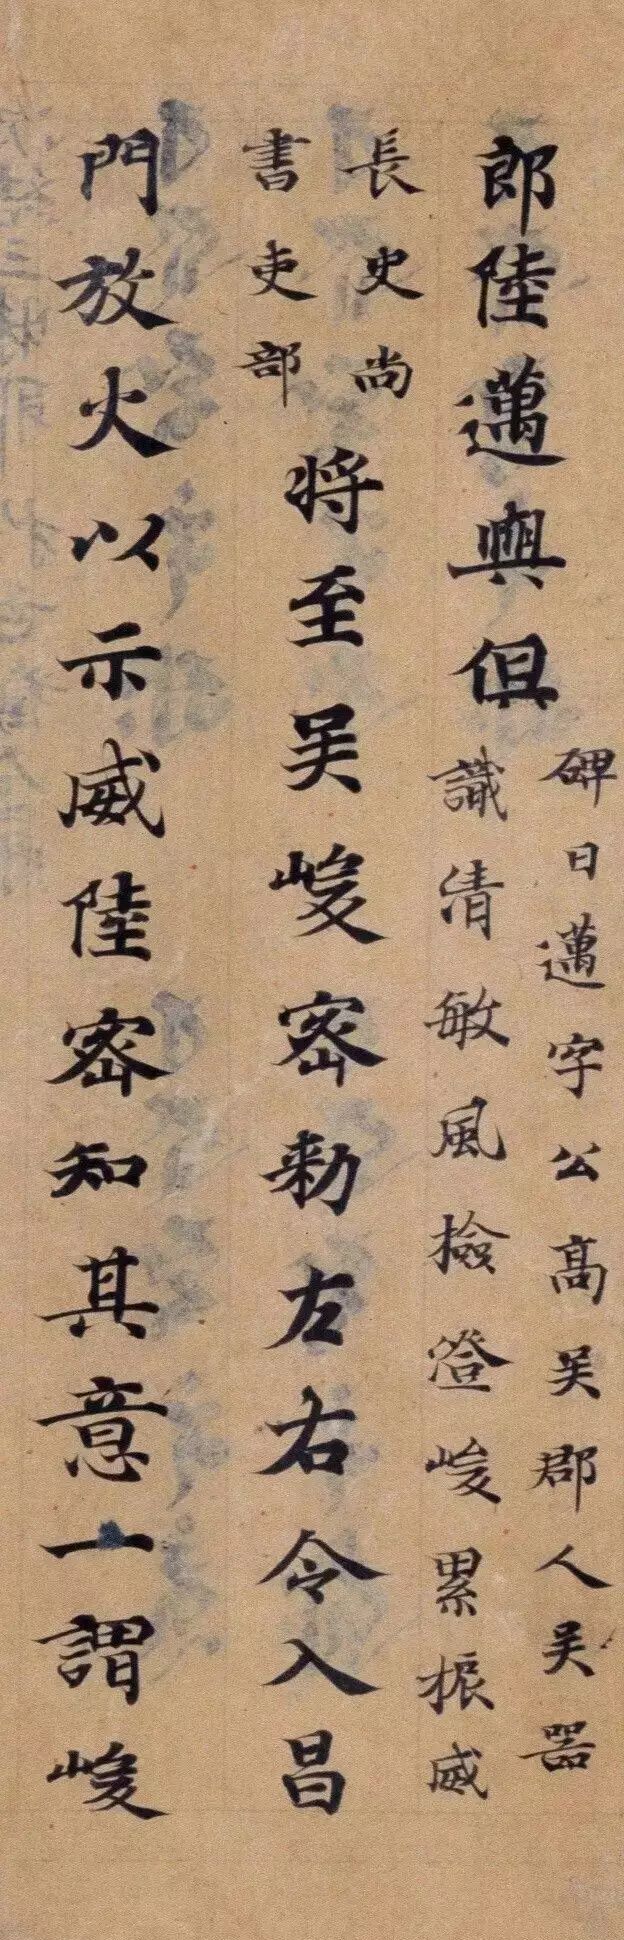 郎陸邁與俱
碑曰邁字公高吳郡人吳器
識清敏風檢澄峻累振威
長史尚
書吏部
将至吳峻密勑左右令入昌
門放火以示威陸密知其意一謂峻